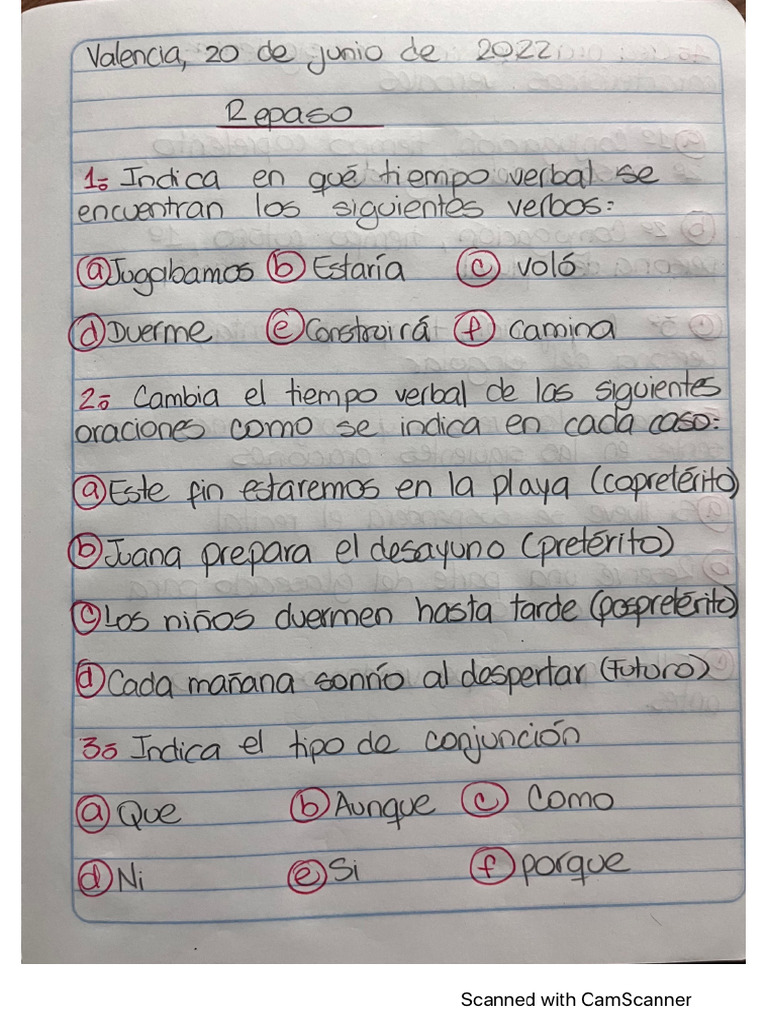 Valencia, 20 de junio de 2022
Repaso
1º Indica en qué tiempo verbal se
encuentran los siguientes verbos:
a Jugabamos b Estaría c voló
d Duerme e Construirá f camina
2º Cambia el tiempo verbal de las siguientes
oraciones como se indica en cada caso:
a Este fin estaremos en la playa (copretérito)
b Juana prepara el desayuno (pretérito)
c Los niños duermen hasta tarde (pospretérito)
d Cada mañana sonrío al despertar (futuro)
3º Indica el tipo de conjunción
a Que b Aunque c Como
d Ni e Si f porque
Scanned with CamScanner